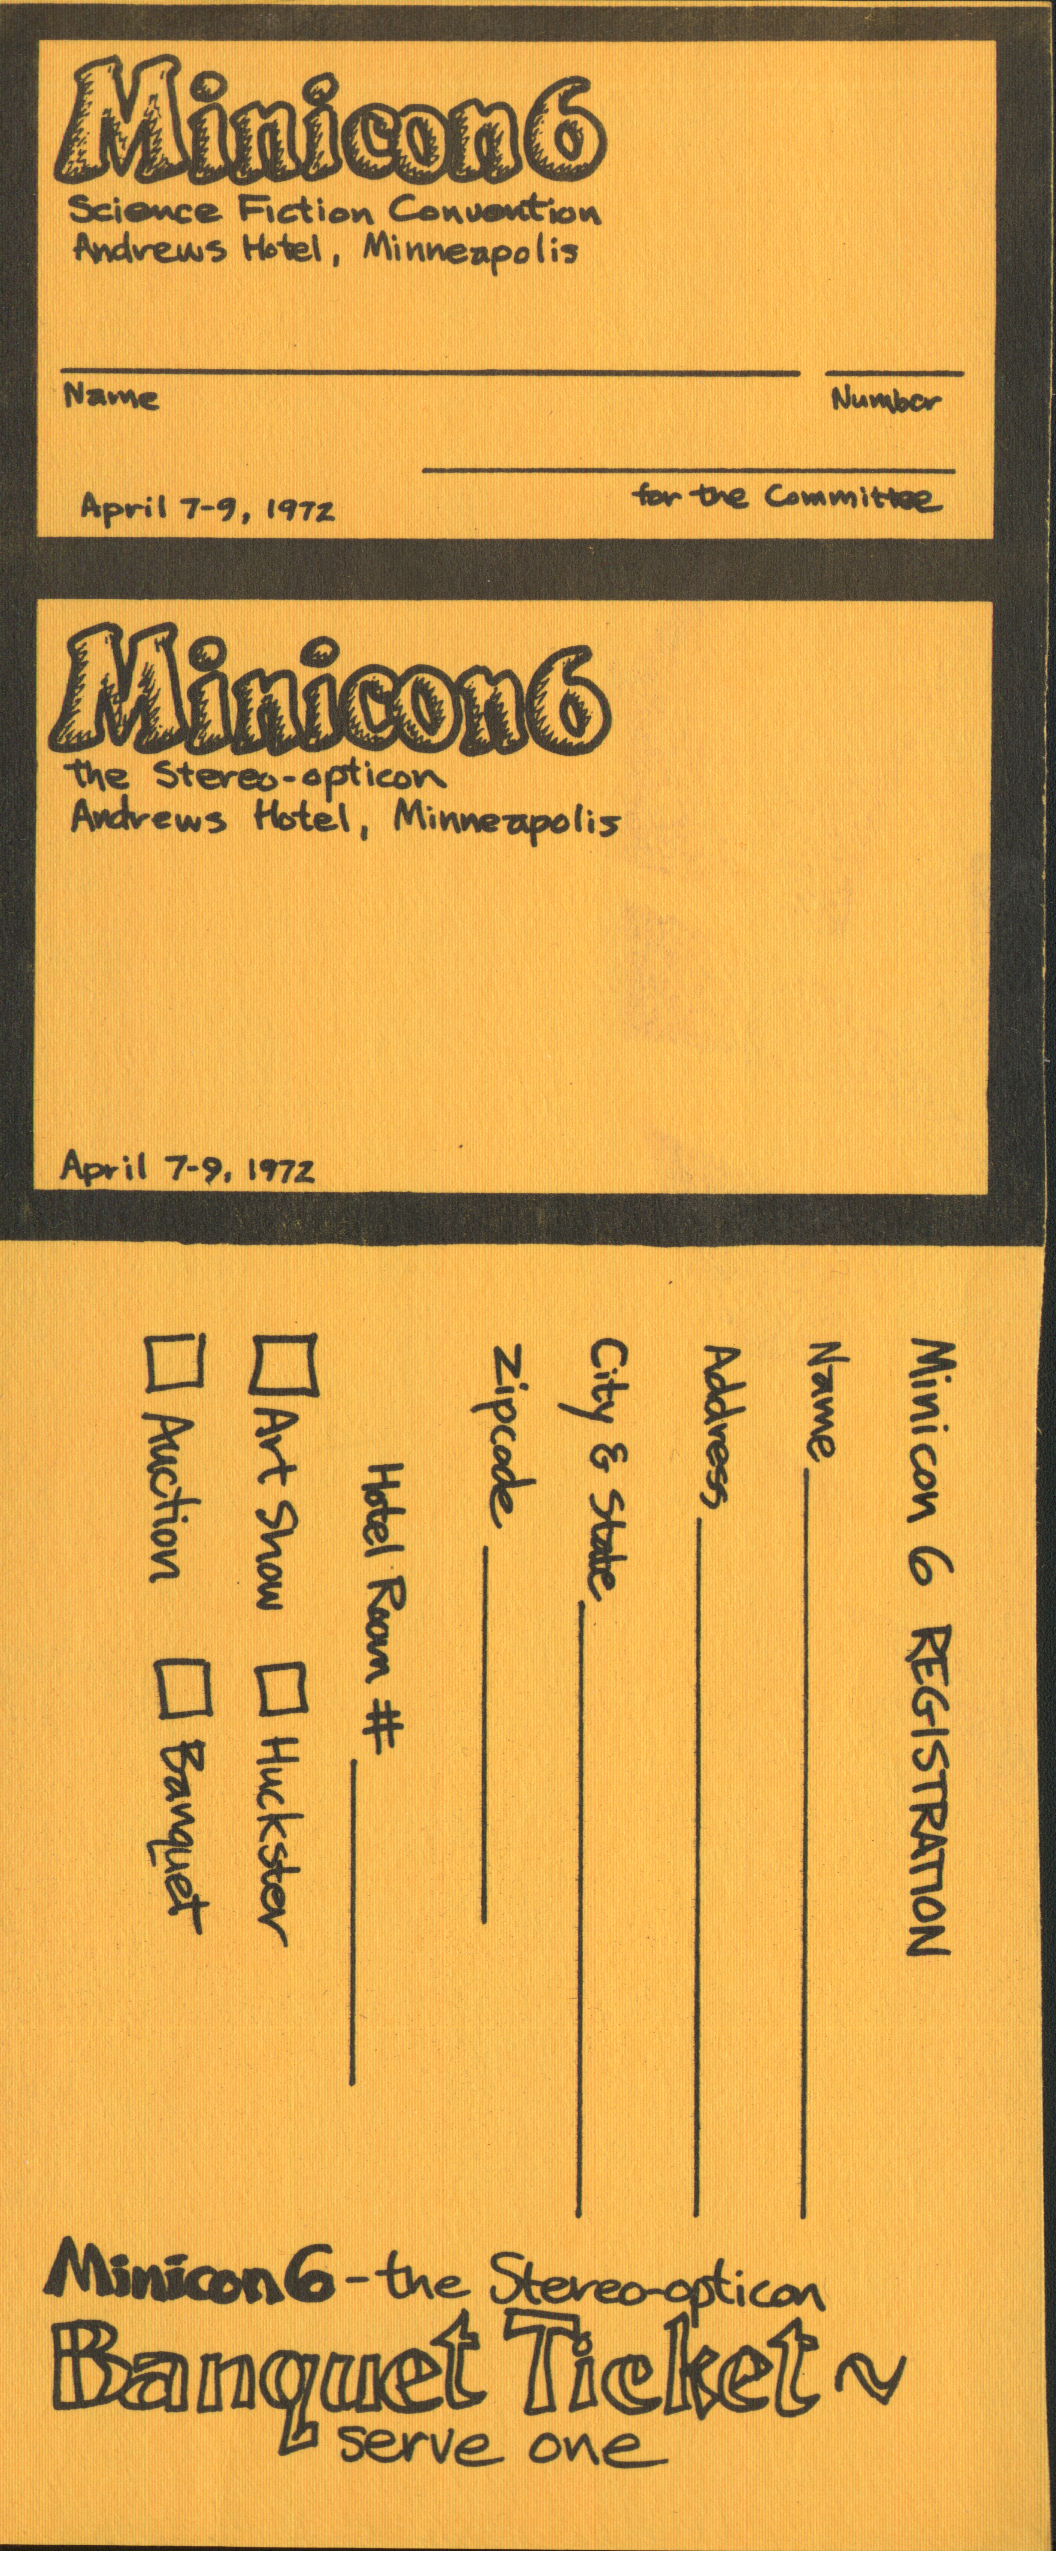 Minicon 6
Science Fiction Convention
Andrews Hotel, Minneapolis
Name
Number
April 7-9, 1972
for the Committee
Minicon 6
the Stereo-opticon
Andrews Hotel, Minneapolis
April 7-9, 1972
Minicon 6 REGISTRATION
Name
Address
City & State
Zipcode
Hotel Room #
Art Show Huckster
Auction Banquet
Minicon 6 - the Stereo-opticon
Banquet Ticket ~
serve one